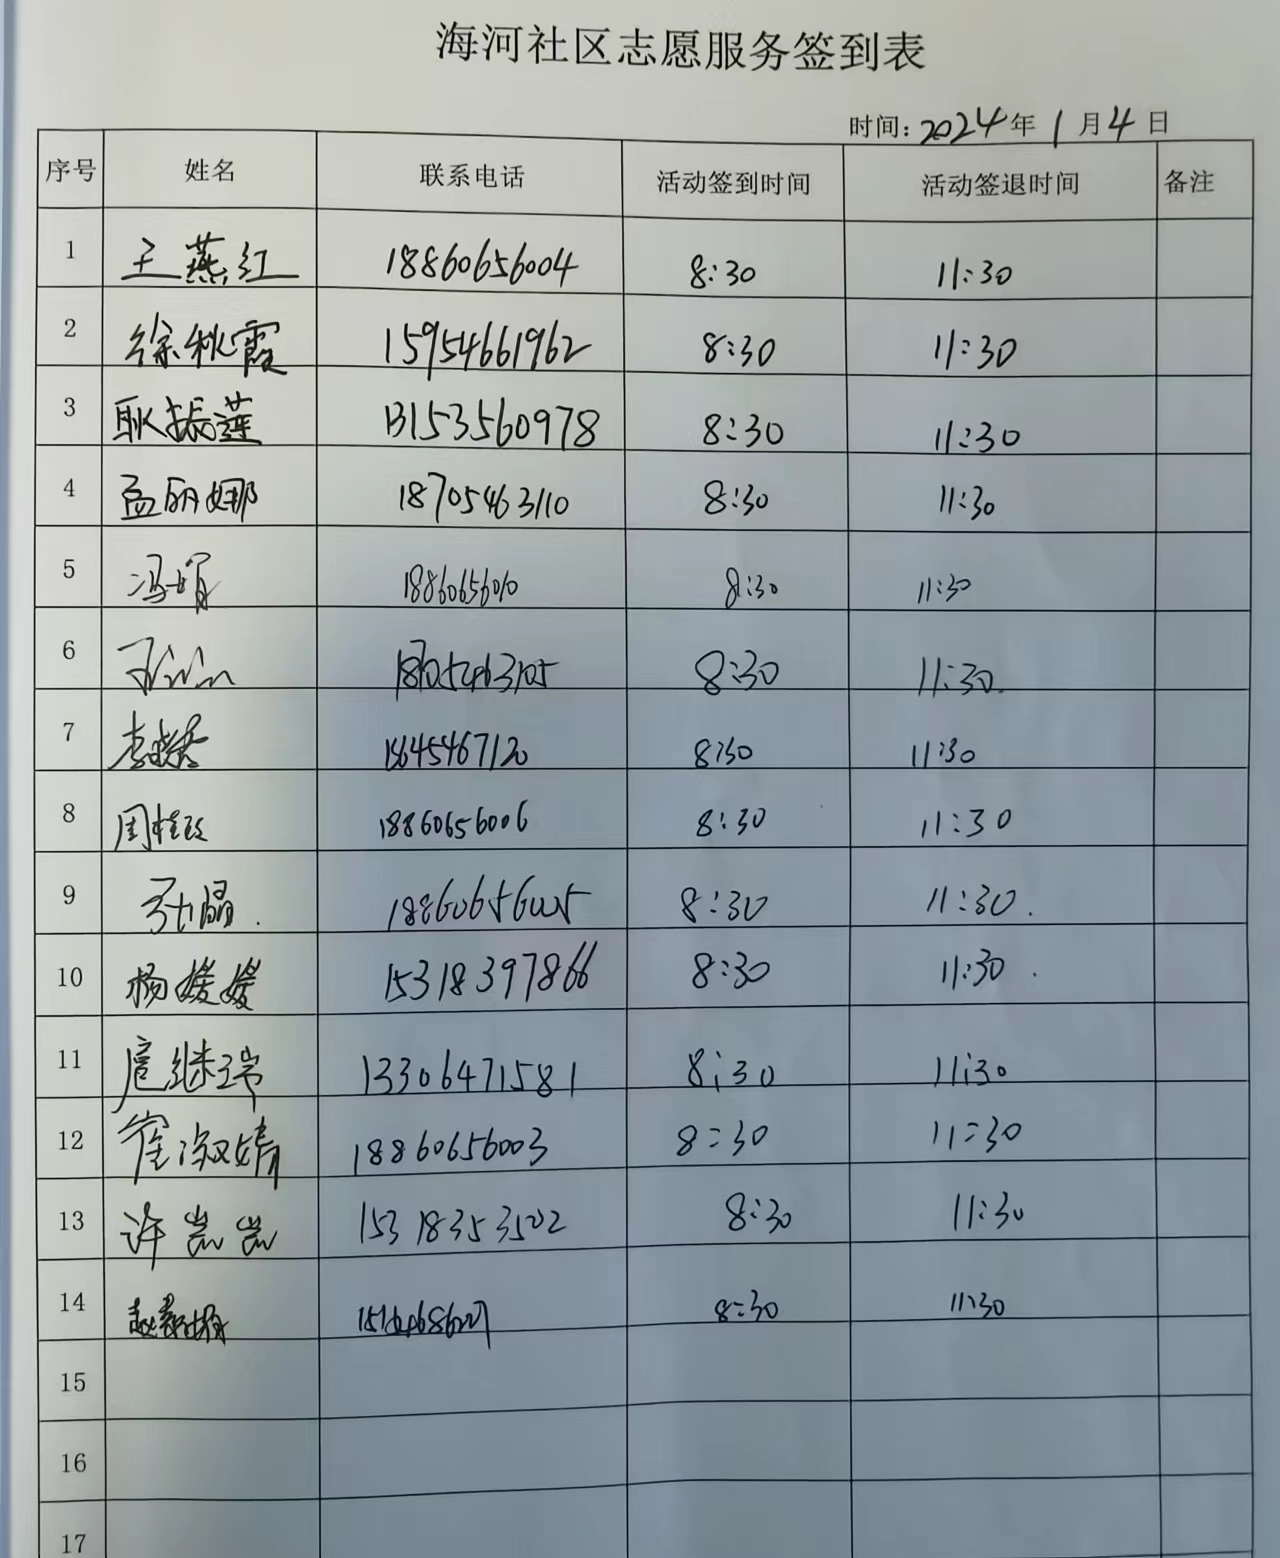 海河社区志愿服务签到表
时间：2024年1月4日
序号 姓名 联系电话 活动签到时间 活动签退时间 备注
1 王燕红 18860656004 8:30 11:30
2 徐秋霞 15954661962 8:30 11:30
3 耿振莲 13153560978 8:30 11:30
4 孟丽娜 18705463110 8:30 11:30
5 冯娟 18860656010 8:30 11:30
6 18705463105 8:30 11:30
7 18645467120 8:30 11:30
8 18860656006 8:30 11:30
9 孙晶 18860656005 8:30 11:30
10 杨媛媛 15318397866 8:30 11:30
11 扈继瑞 13306471581 8:30 11:30
12 崔淑婧 18860656003 8:30 11:30
13 许凯凯 15318353502 8:30 11:30
14 8:30 11:30
15
16
17